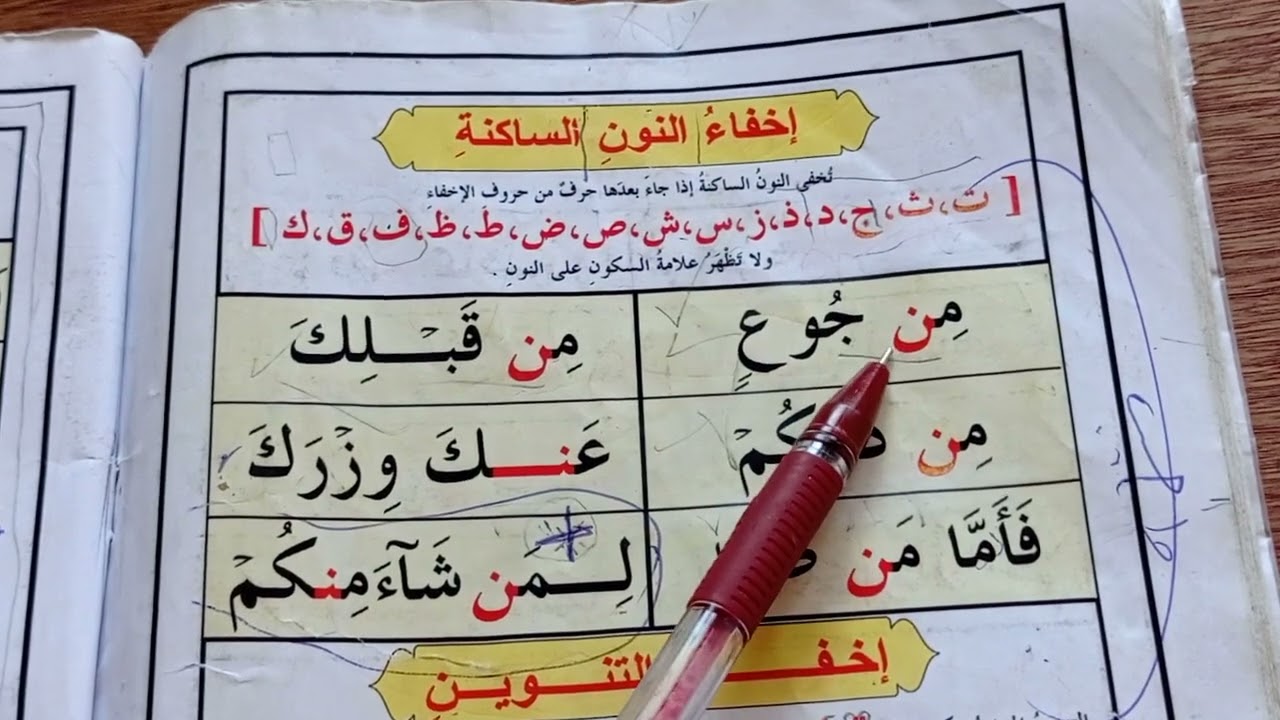 إخفاءُ النونِ الساكنةِ
تُخفى النونُ الساكنةُ إذا جاءَ بعدَها حرفٌ من حروفِ الإخفاءِ
[ ت، ث، ج، د، ذ، ز، س، ش، ص، ض، ط، ظ، ف، ق، ك ]
ولا تَظْهَرُ علامةُ السكونِ على النونِ .
مِن جُوعٍ مِن قَبْلِكَ
مِن عَنكَ وِزْرَكَ
فَأَمَّا مَن لِمَن شَآءَ مِنكُمْ
إخفاء التنوينِ